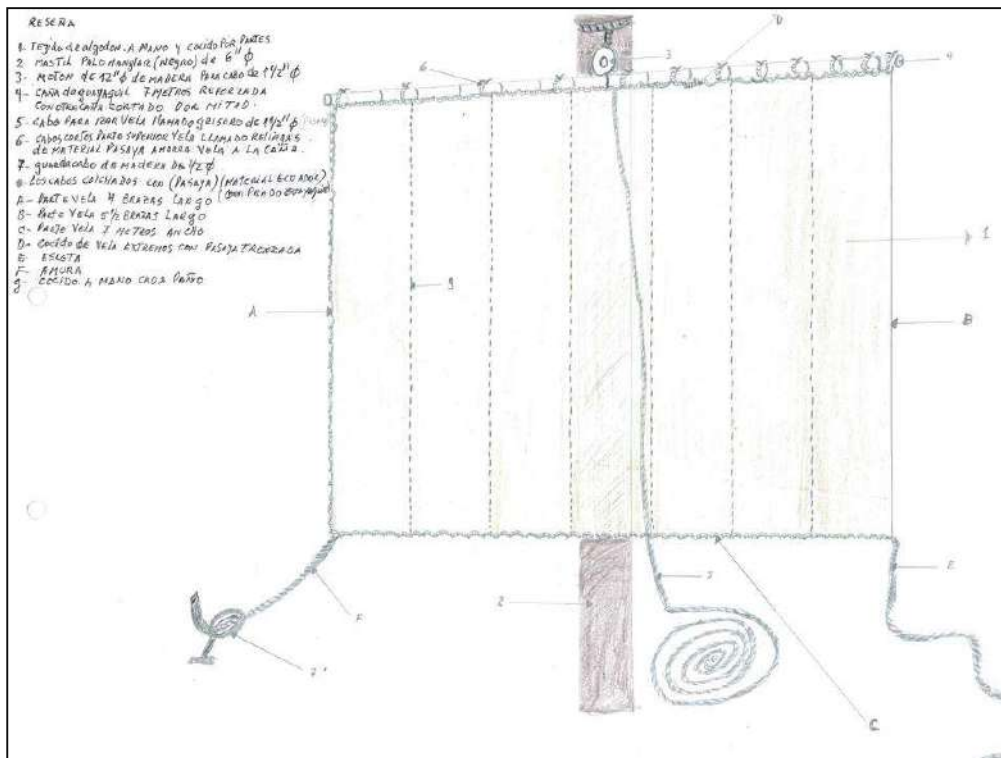 RESEÑA
1- Tejido de algodon. A MANO y cocido POR PARTES
2 MASTIL PALO MANGLAR (NEGRO) de 6" φ
3- MOTON de 12" φ de MADERA PARA CABO de 1 1/2" φ
4- CAÑA de guayaquil 7 METROS REFORZADA
CON OTRA CAÑA CORTADO POR MITAD.
5- CABO PARA IZAR VELA LLAMADO GRISERO de 1 1/2" φ
6- CABOS CORTOS PARTE SUPERIOR VELA LLAMADO RELINGAS
de MATERIAL PASAYA AMARRA VELA A LA CAÑA.
7- guardacabo de MADERA DE 1/2 φ
LOS CABOS COLCHADOS CON (PASAYA) (MATERIAL ECUADOR)
A- PARTE VELA 4 BRAZAS LARGO
B- PARTE VELA 5 1/2 BRAZAS LARGO
C- PARTE VELA 7 METROS ANCHO
D- COCIDO de VELA EXTREMOS CON PASAYA TRENZADA
E ESCOTA
F- AMURA
g- COCIDO A MANO CADA PAÑO
D
3
4
6
1
g
A
B
F
7
2
5
E
C